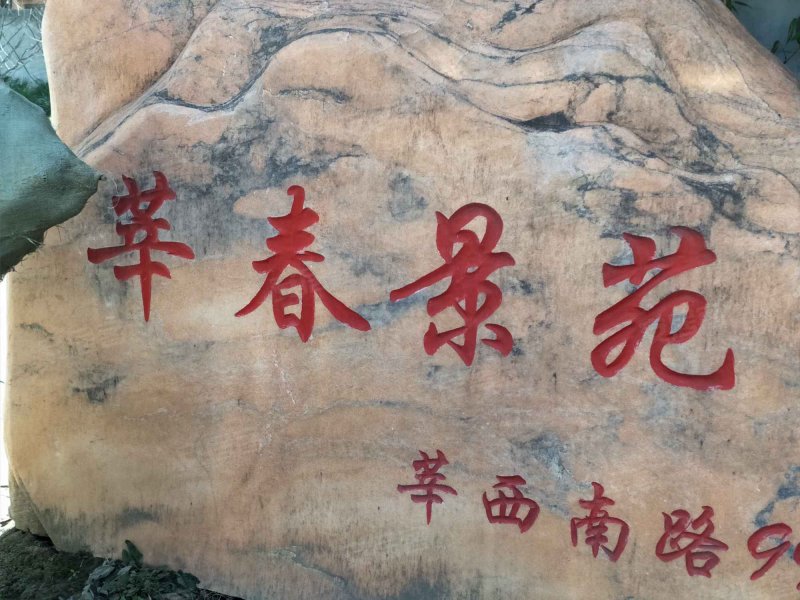 莘春景苑
莘西南路9